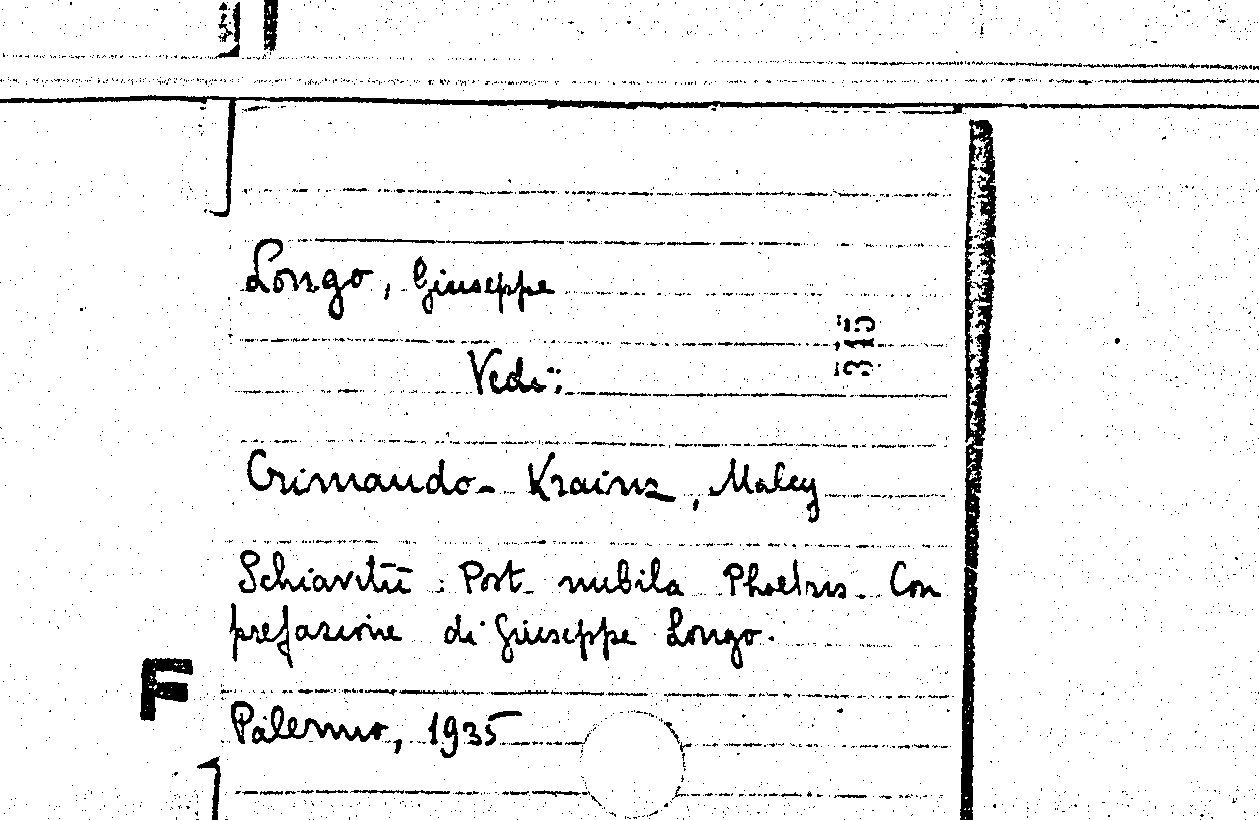 Longo, Giuseppe
315
Vedi:
Crimaudo-Krainz, Malcy
Schiavitù : Post nubila Phoebus. Con
prefazione di Giuseppe Longo.
F
Palermo, 1935